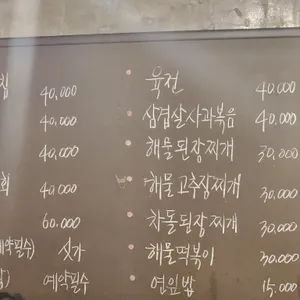 침 40,000
40,000
40,000
회 40,000
60,000
예약필수) 싯가
예약필수
육전 40,000
삼겹살사과볶음 40,000
해물된장찌개 30,000
해물고추장찌개 30,000
차돌된장찌개 30,000
해물떡볶이 30,000
연잎밥 15,000